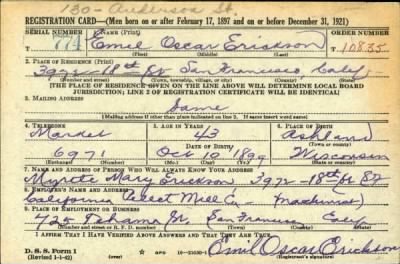 130 - Anderson St.
REGISTRATION CARD—(Men born on or after February 17, 1897 and on or before December 31, 1921)
SERIAL NUMBER 1. NAME (Print) ORDER NUMBER
Emil Oscar Erickson 10835
2. PLACE OF RESIDENCE (Print)
3972-18th St San Francisco Calif
(Number and street) (Town, township, village, or city) (County) (State)
[THE PLACE OF RESIDENCE GIVEN ON THE LINE ABOVE WILL DETERMINE LOCAL BOARD
JURISDICTION; LINE 2 OF REGISTRATION CERTIFICATE WILL BE IDENTICAL]
3. MAILING ADDRESS
Same
[Mailing address if other than place indicated on line 2. If same insert word same]
4. TELEPHONE 5. AGE IN YEARS 6. PLACE OF BIRTH
Market 43 Ashland
DATE OF BIRTH (Town or county)
6971 Oct 10 1899 Wisconsin
(Exchange) (Number) (Mo.) (Day) (Yr.) (State or country)
7. NAME AND ADDRESS OF PERSON WHO WILL ALWAYS KNOW YOUR ADDRESS
Mary Erickson 3972-18th St
8. EMPLOYER'S NAME AND ADDRESS
California Mill Co
9. PLACE OF EMPLOYMENT OR BUSINESS
425 Tehama St, San Francisco Calif
(Number and street or R. F. D. number) (Town) (County) (State)
I AFFIRM THAT I HAVE VERIFIED ABOVE ANSWERS AND THAT THEY ARE TRUE.
D. S. S. Form 1
(Revised 1-1-42) (over)
Emil Oscar Erickson
(Registrant's signature)